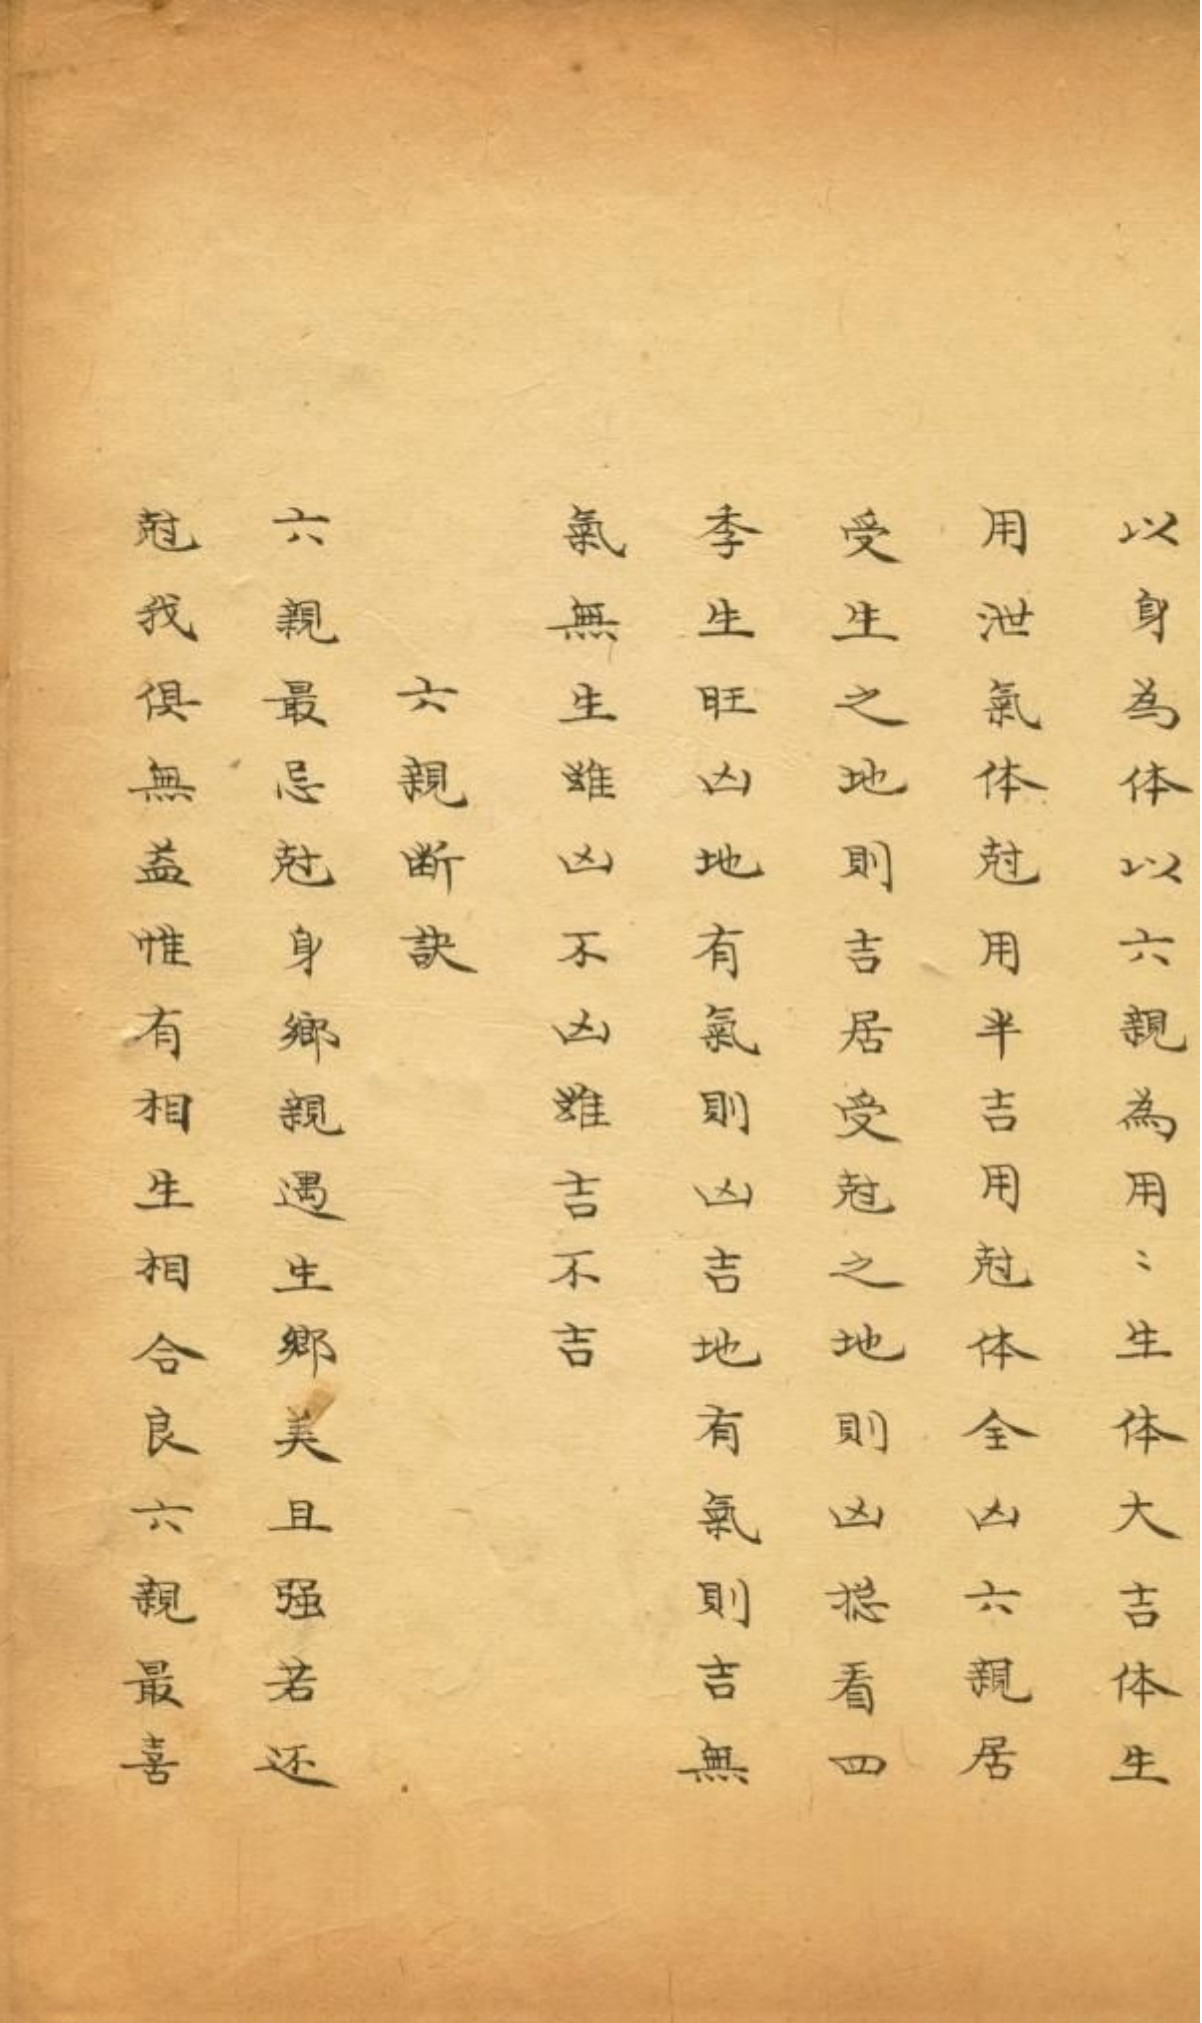 以身為体以六親為用〻生体大吉体生
用泄氣体尅用半吉用尅体全凶六親居
受生之地則吉居受尅之地則凶捴看四
季生旺凶地有氣則凶吉地有氣則吉無
氣無生雖凶不凶雖吉不吉
六親断訣
六親最忌尅身鄉親遇生鄉美且强若还
尅我俱無益惟有相生相合良六親最喜